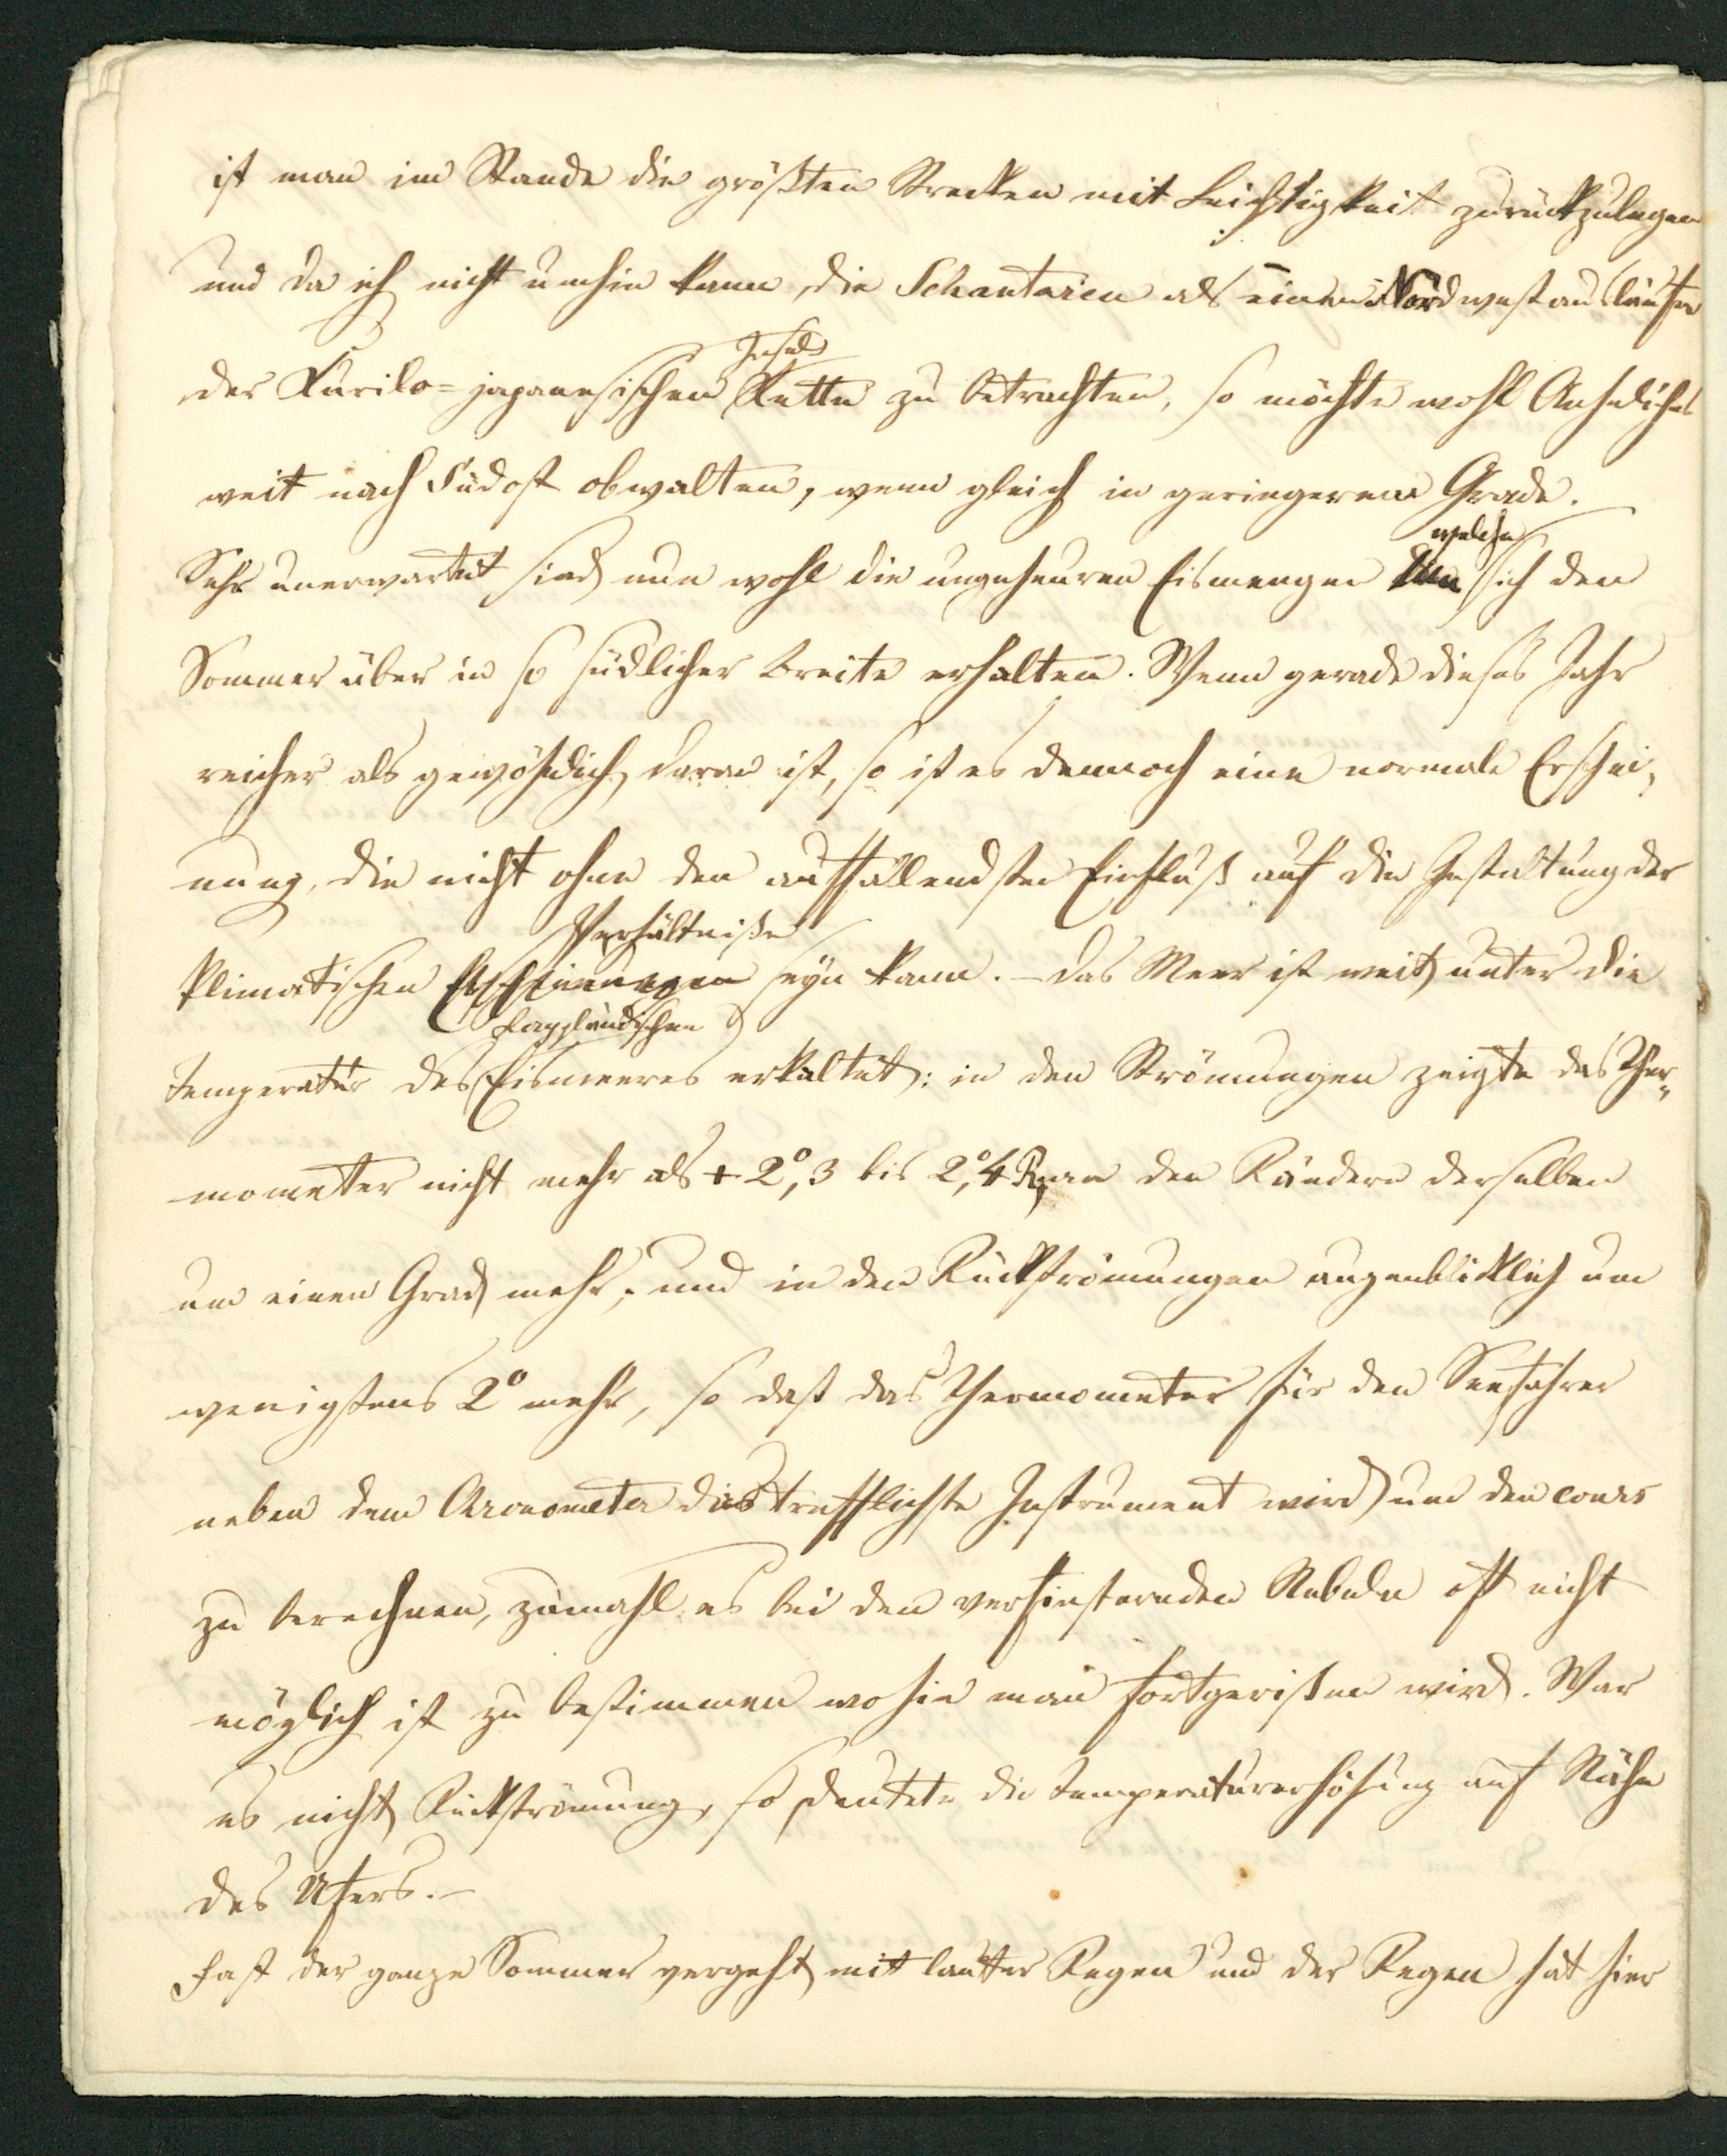 ist man im Stande die größten Strecken mit Leichtigkeit zurückzulegen
und da ich nicht umhin kann, die Schantaren als einen Nordwestausläufer
der Kurilo=japanesischen Insel Kette zu betrachten, so möchte wohl Aehnliches
weit nach Südost obwalten, wenn gleich in geringerem Grade.
Sehr unerwartet sind nun wohl die ungeheuren Eismengen welche sich den
Sommer über in so südlicher Breite erhalten. Wenn gerade dieses Jahr
reicher als gewöhnlich daran ist, so ist es dennoch eine normale Erschei„
nung, die nicht ohne den auffallendsten Einfluß auf die Gestaltung der
klimatischen Erscheinungen Verhältniße seyn kann. – Das Meer ist weit unter die
Temperatur des Lappländischen Eismeeres erkaltet; in den Strömungen zeigte das Ther„
mometer nicht mehr als + 2°,3 bis 2°,4 R, an den Rändern derselben
um einen Grad mehr; und in den Rückströmungen augenblicklich um
wenigstens 2° mehr, so daß das Thermometer für den Seefahrer
neben dem Aronometer das trefflichste Instrument wird um den cours
zu berechnen, zumahl es bei den verfinsternden Nebeln oft nicht
möglich ist zu bestimmen wohin man fortgerißen wird. War
es nicht Rückströmung, so deutete die Temperaturerhöhung auf Nähe
des Ufers. –
Fast der ganze Sommer vergeht mit lauter Regen und der Regen hat hier